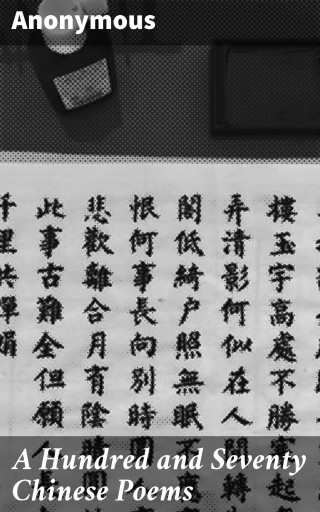 Anonymous
樓玉宇高處不勝寒起
弄清影何似在人間轉
閣低綺户照無眠不
恨何事長向別時圓
悲歡離合月有陰晴圓
此事古難全但願人
千里共嬋娟
A Hundred and Seventy
Chinese Poems